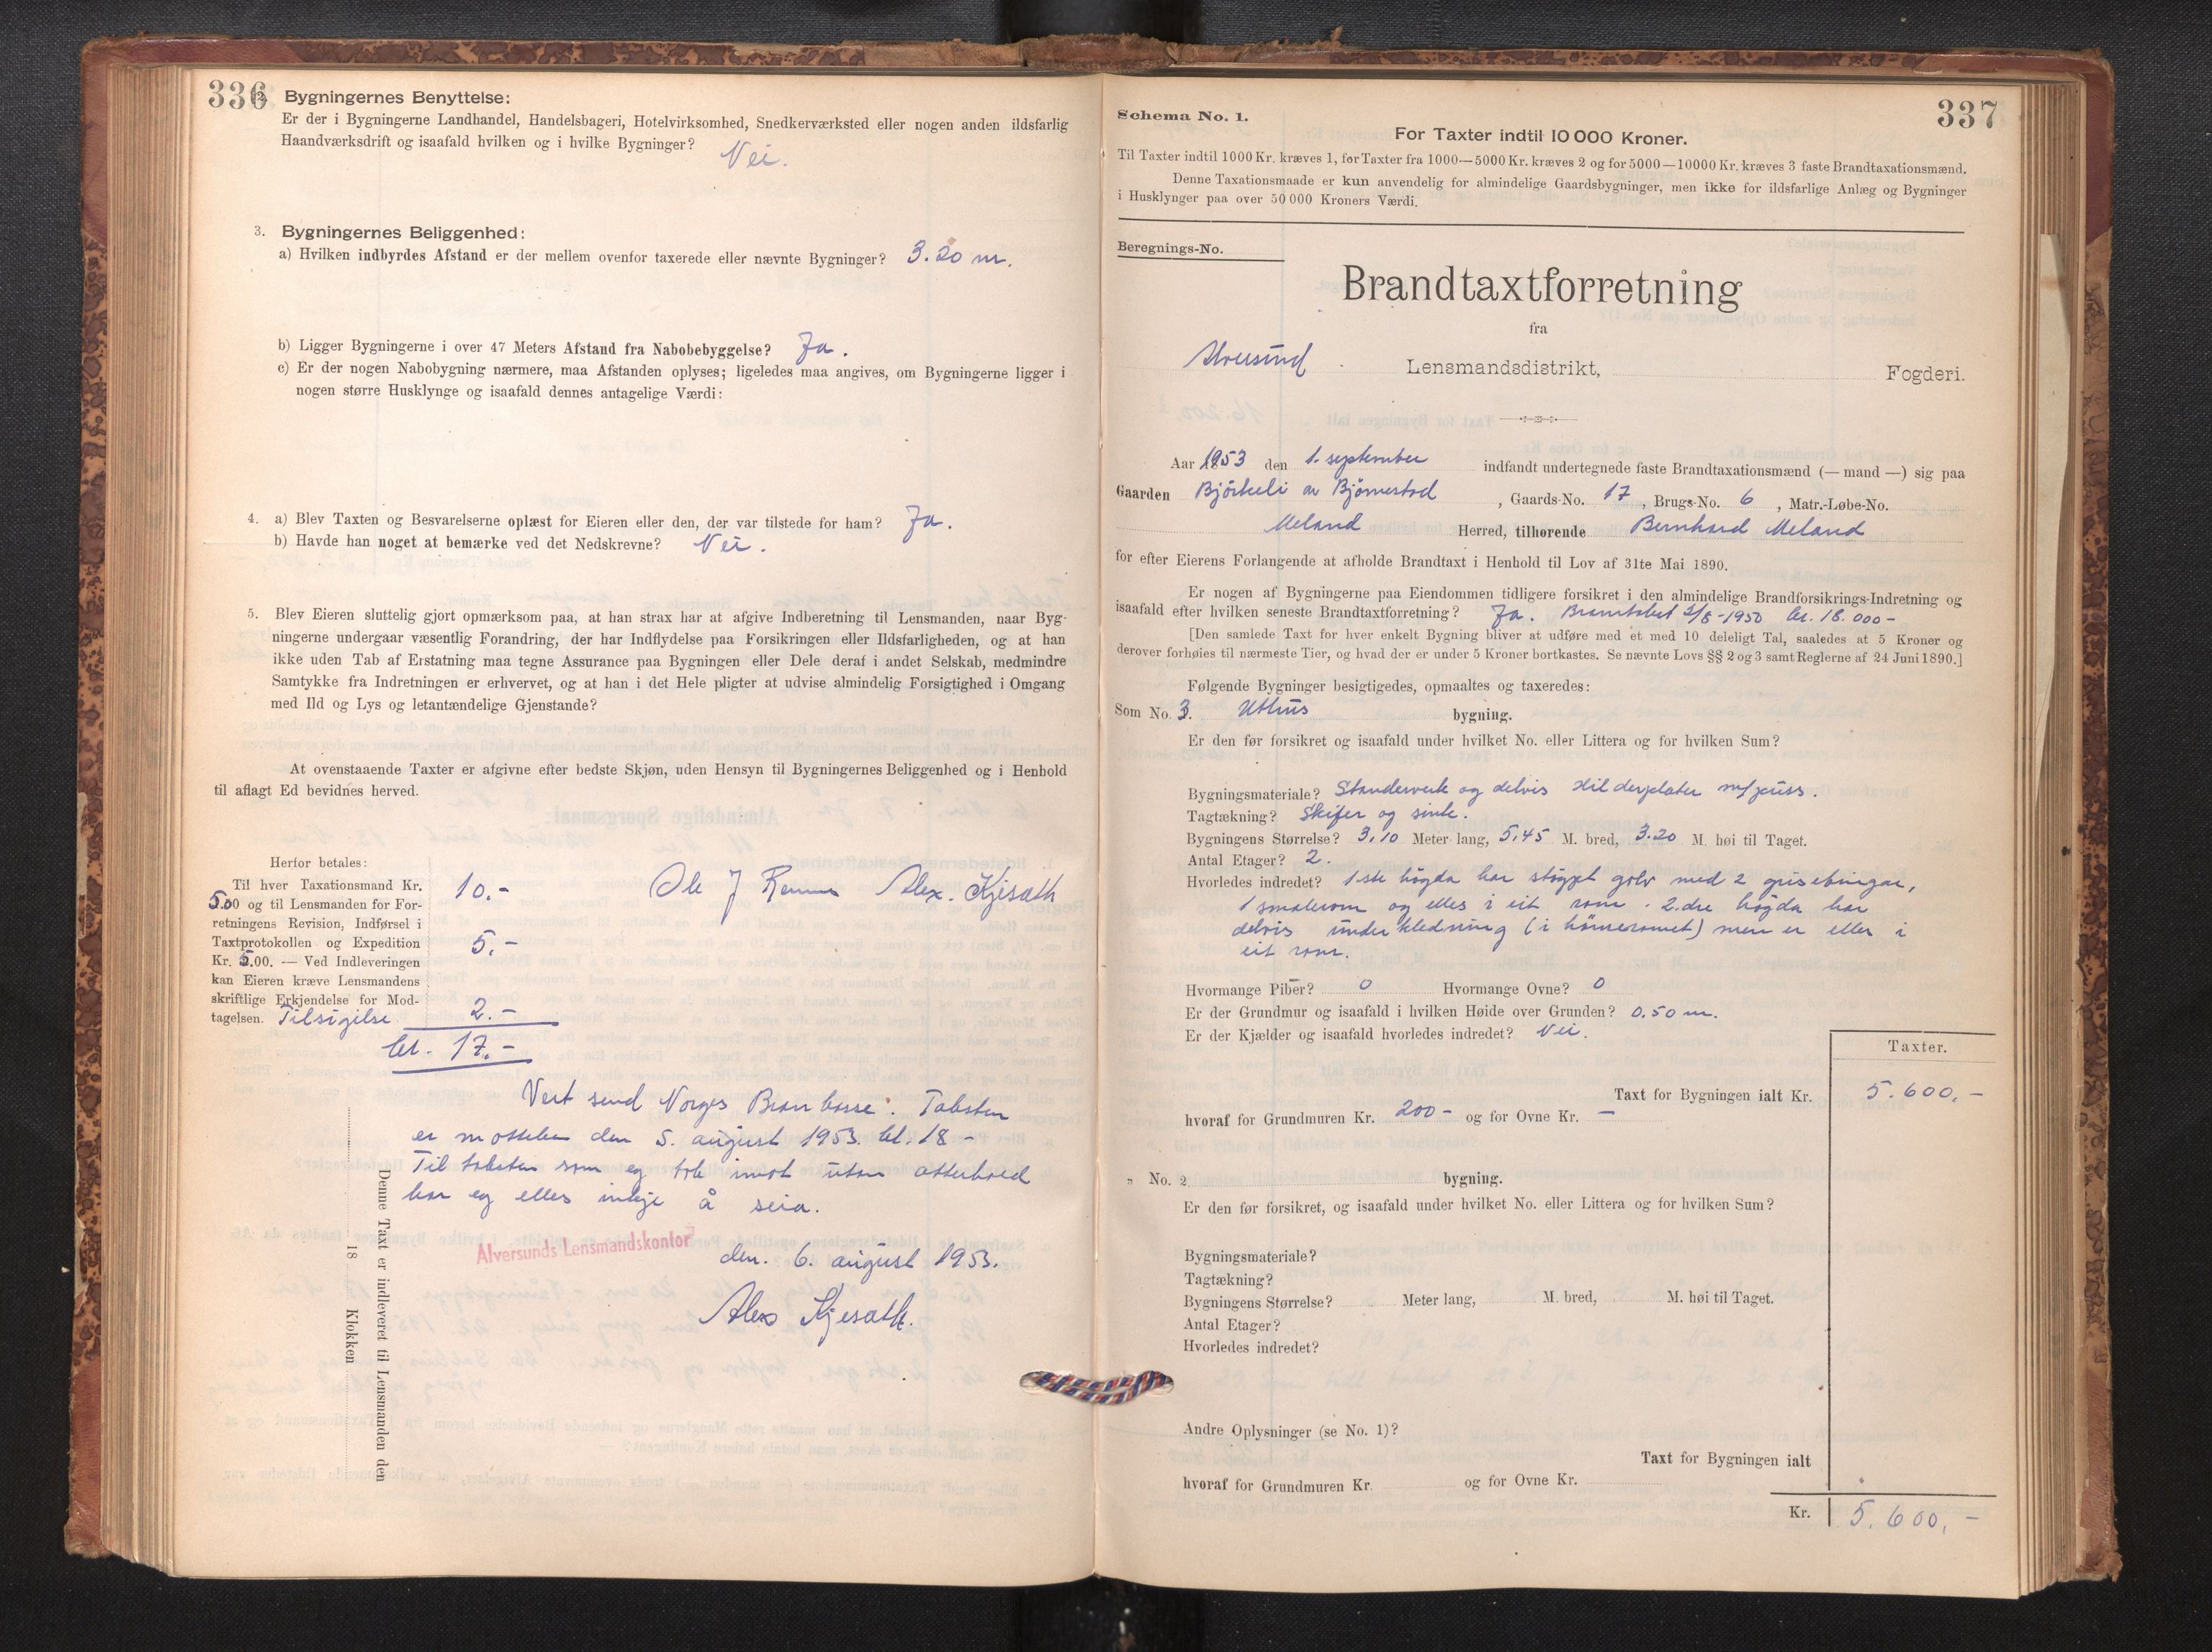 336
2. Bygningernes Benyttelse:
Er der i Bygningerne Landhandel, Handelsbageri, Hotelvirksomhed, Snedkerværksted eller nogen anden ildsfarlig
Haandværksdrift og isaafald hvilken og i hvilke Bygninger? Nei.
3. Bygningernes Beliggenhed:
a) Hvilken indbyrdes Afstand er der mellem ovenfor taxerede eller nævnte Bygninger? 3.20 m.
b) Ligger Bygningerne i over 47 Meters Afstand fra Nabobebyggelse? Ja.
c) Er der nogen Nabobygning nærmere, maa Afstanden oplyses; ligeledes maa angives, om Bygningerne ligger i
nogen større Husklynge og isaafald dennes antagelige Værdi:
4. a) Blev Taxten og Besvarelserne oplæst for Eieren eller den, der var tilstede for ham? Ja.
b) Havde han noget at bemærke ved det Nedskrevne? Nei.
5. Blev Eieren sluttelig gjort opmærksom paa, at han strax har at afgive Indberetning til Lensmanden, naar Byg-
ningerne undergaar væsentlig Forandring, der har Indflydelse paa Forsikringen eller Ildsfarligheden, og at han
ikke uden Tab af Erstatning maa tegne Assurance paa Bygningen eller Dele deraf i andet Selskab, medmindre
Samtykke fra Indretningen er erhvervet, og at han i det Hele pligter at udvise almindelig Forsigtighed i Omgang
med Ild og Lys og letantændelige Gjenstande?
At ovenstaaende Taxter er afgivne efter bedste Skjøn, uden Hensyn til Bygningernes Beliggenhed og i Henhold
til aflagt Ed bevidnes herved.
Herfor betales:
Til hver Taxationsmand Kr. 10.-
5.00 og til Lensmanden for For-
retningens Revision, Indførsel i
Taxtprotokollen og Expedition 5.-
Kr. 5.00. — Ved Indleveringen
kan Eieren kræve Lensmandens
skriftlige Erkjendelse for Mod-
tagelsen. Tilsigelse 2.-
kr. 17.-
Ole J Alex. Kjesath
Vert send Norges Brankasse. Taksten
er motteken den 5. august 1953. kl. 18 -
Til taksten som eg tok imot utan atterhald
har eg elles inkje å seia.
Alversunds Lensmandskontor
den. 6. august 1953.
Alex Kjesath.
Denne Taxt er indleveret til Lensmanden den
18 Klokken
337
Schema No. 1.
For Taxter indtil 10 000 Kroner.
Til Taxter indtil 1000 Kr. kræves 1, for Taxter fra 1000—5000 Kr. kræves 2 og for 5000—10000 Kr. kræves 3 faste Brandtaxationsmænd.
Denne Taxationsmaade er kun anvendelig for almindelige Gaardsbygninger, men ikke for ildsfarlige Anlæg og Bygninger
i Husklynger paa over 50 000 Kroners Værdi.
Beregnings-No.
Brandtaxtforretning
fra
Alversund Lensmandsdistrikt, Fogderi.
Aar 1953 den 1. september indfandt undertegnede faste Brandtaxationsmænd (— mand —) sig paa
Gaarden Björkeli av Björnestad, Gaards-No. 17, Brugs-No. 6, Matr.-Løbe-No.
Meland Herred, tilhørende Bernhard Meland
for efter Eierens Forlangende at afholde Brandtaxt i Henhold til Lov af 31te Mai 1890.
Er nogen af Bygningerne paa Eiendommen tidligere forsikret i den almindelige Brandforsikrings-Indretning og
isaafald efter hvilken seneste Brandtaxtforretning? Ja. Branntakst 2/8-1950 kr. 18.000-
[Den samlede Taxt for hver enkelt Bygning bliver at udføre med et med 10 deleligt Tal, saaledes at 5 Kroner og
derover forhøies til nærmeste Tier, og hvad der er under 5 Kroner bortkastes. Se nævnte Lovs §§ 2 og 3 samt Reglerne af 24 Juni 1890.]
Følgende Bygninger besigtigedes, opmaaltes og taxeredes:
Som No. 3. Uthus bygning.
Er den før forsikret og isaafald under hvilket No. eller Littera og for hvilken Sum?
Bygningsmateriale? Standerverk og delvis sildерplater m/puss.
Tagtækning? Skifer og sink.
Bygningens Størrelse? 3,10 Meter lang, 5,45 M. bred, 3.20 M. høi til Taget.
Antal Etager? 2.
Hvorledes indredet? 1ste högda har støypt golv med 2 grisebingar,
1 smalerom og elles i eit rom. 2.dre högda har
delvis underkledning (i hönserommet) men er elles i
eit rom.
Hvormange Piber? 0 Hvormange Ovne? 0
Er der Grundmur og isaafald i hvilken Høide over Grunden? 0.50 m.
Er der Kjælder og isaafald hvorledes indredet? Nei.
Taxter.
Taxt for Bygningen ialt Kr. 5.600,-
hvoraf for Grundmuren Kr. 200- og for Ovne Kr. —
" No. 2 bygning.
Er den før forsikret, og isaafald under hvilket No. eller Littera og for hvilken Sum?
Bygningsmateriale?
Tagtækning?
Bygningens Størrelse? Meter lang, M. bred, M. høi til Taget.
Antal Etager?
Hvorledes indredet?
Andre Oplysninger (se No. 1)?
Taxt for Bygningen ialt
hvoraf for Grundmuren Kr. og for Ovne Kr.
Kr. 5.600,-